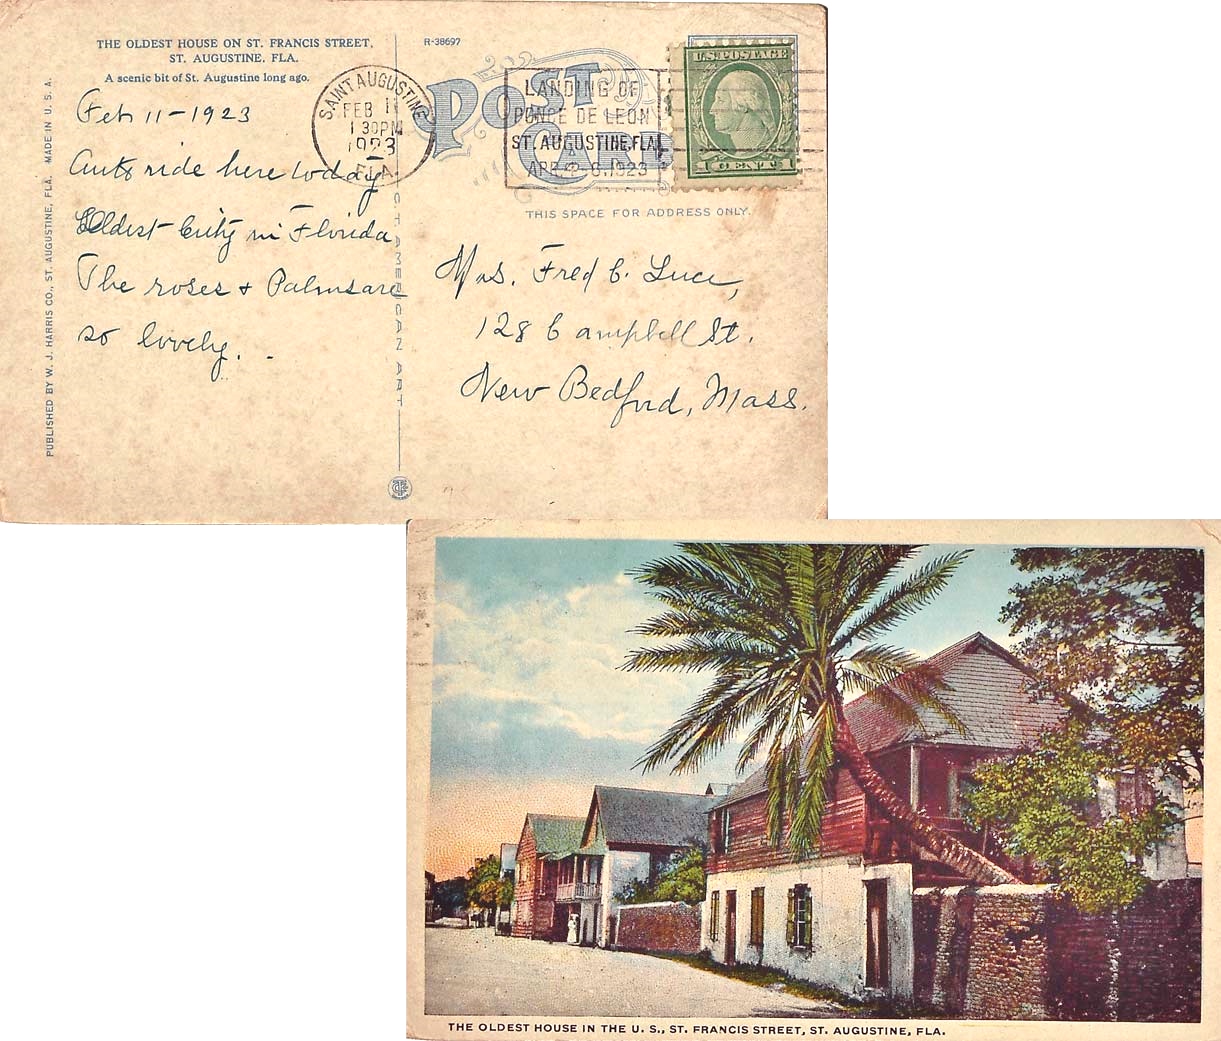 THE OLDEST HOUSE ON ST. FRANCIS STREET,
ST. AUGUSTINE, FLA.
A scenic bit of St. Augustine long ago.
R-38697
POST CARD
SAINT AUGUSTINE
FEB 11
1 30PM
1923
FLA.
LANDING OF
PONCE DE LEON
ST. AUGUSTINE, FLA.
APR. 2-6, 1923
U.S. POSTAGE
1 CENT 1
THIS SPACE FOR ADDRESS ONLY.
Feb 11-1923
Auto ride here today
Oldest City in Florida
The roses & Palms are
so lovely. -
Mrs. Fred C. Luce,
128 Campbell St.
New Bedford, Mass.
PUBLISHED BY W. J. HARRIS CO., ST. AUGUSTINE, FLA. MADE IN U. S. A.
C. T. AMERICAN ART
THE OLDEST HOUSE IN THE U. S., ST. FRANCIS STREET, ST. AUGUSTINE, FLA.